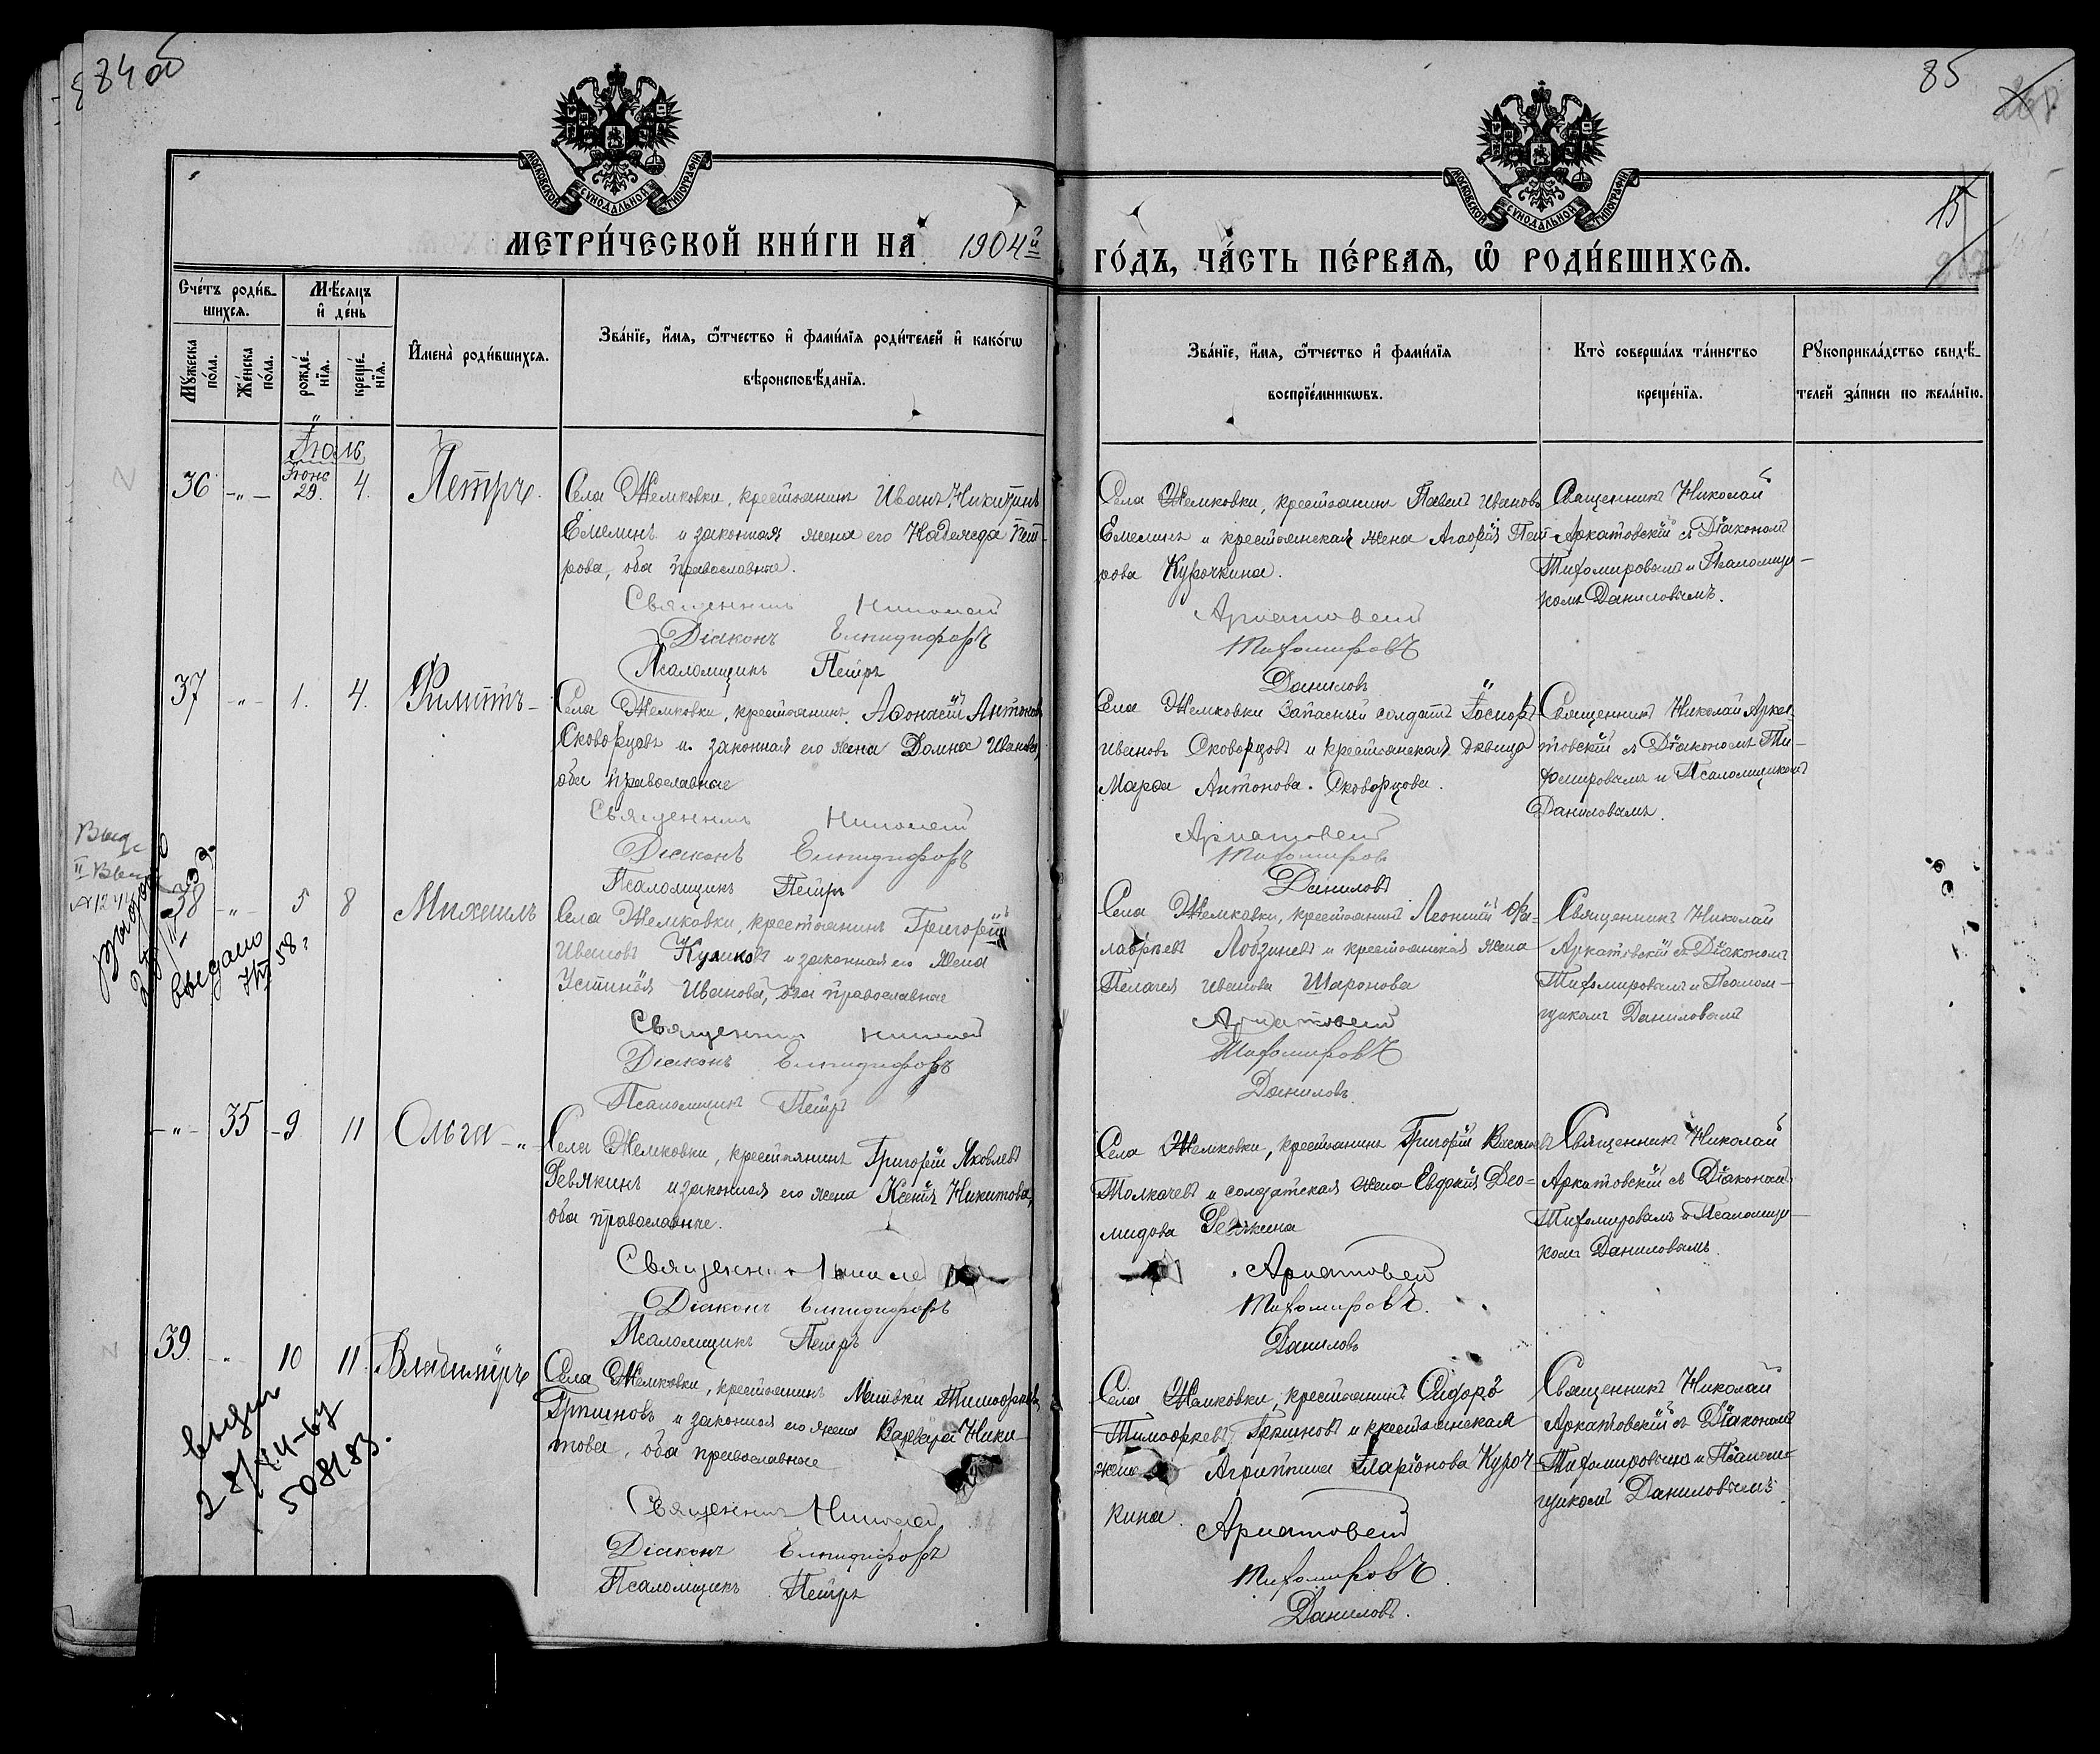 84 об
85
МОСКОВСКОЙ СѴНОДАЛЬНОЙ ТИПОГРАФІИ
МОСКОВСКОЙ СѴНОДАЛЬНОЙ ТИПОГРАФІИ
15
МЕТРИ́ЧЕСКОЙ КНИ́ГИ НА 1904й
ГО́ДЪ, ЧА́СТЬ ПЕ́РВАѦ, Ѡ҆ РОДИ́ВШИХСѦ.
Сче́тъ роди́в-
шихсѧ.
Мꙋ́жеска
по́ла.
Же́нска
по́ла.
Мѣ́сѧцъ
и҆ де́нь
рожде́-
нїѧ.
креще́-
нїѧ.
И҆мена̀ роди́вшихсѧ.
Зва́нїе, и҆́мѧ, ѻ҆́тчество и҆ фами́лїѧ роди́телей и҆ како́гѡ
вѣроисповѣ́данїѧ.
Зва́нїе, и҆́мѧ, ѻ҆́тчество и҆ фами́лїѧ
воспрїе́мникѡвъ.
Кто̀ соверша́лъ та́инство
креще́нїѧ.
Рꙋкоприкла́дство свидѣ́-
телей за́писи по жела́нїю.
Іюль
36 -"- Іюнь 29. 4. Петръ.
Села Жемковки, крестьянинъ Иванъ Никитинъ
Емелинъ и законная жена его Надежда Пет-
рова, оба православные.
Священникъ Николай
Діаконъ Елпидифоръ
Псаломщикъ Петръ
Села Жемковки, крестьянинъ Павелъ Ивановъ
Емелинъ и крестьянская жена Агафія Пет-
рова Курочкина.
Аркатовскій
Тихомировъ
Даниловъ
Священникъ Николай
Аркатовскій съ Діакономъ
Тихомировымъ и Псаломщи-
комъ Даниловымъ.
37 -"- 1. 4. Филиппъ
Села Жемковки, крестьянинъ Аѳонасій Антоновъ
Скворцовъ и законная его жена Домна Иванова,
оба православные
Священникъ Николай
Діаконъ Елпидифоръ
Псаломщикъ Петръ
Села Жемковки Запасный солдатъ Іосифъ
Ивановъ Скворцовъ и крестьянская дѣвица
Марѳа Антонова Скворцова.
Аркатовскій
Тихомировъ
Даниловъ
Священникъ Николай Арка-
товскій съ Діакономъ Ти-
хомировымъ и Псаломщикомъ
Даниловымъ.
38 -"- 5 8 Михаилъ
Села Жемковки, крестьянинъ Григорій
Ивановъ Куликовъ и законная его жена
Устинія Иванова, оба православные
Священникъ Николай
Діаконъ Елпидифоръ
Псаломщикъ Петръ
Села Жемковки, крестьянинъ Леонтій
Лобзиневъ и крестьянская жена
Пелагея Иванова Шаронова
Аркатовскій
Тихомировъ
Даниловъ
Священникъ Николай
Аркатовскій съ Діакономъ
Тихомировымъ и Псалом-
щикомъ Даниловымъ
выдано
58 г
-"- 35 9 11 Ольга
Села Жемковки, крестьянинъ Григорій Яковлевъ
Ревякинъ и законная его жена Ксенія Никитова,
оба православные.
Священникъ Николай
Діаконъ Елпидифоръ
Псаломщикъ Петръ
Села Жемковки, крестьянинъ Григорій
Толкачевъ и солдатская жена Евдокія Део-
мидова
Аркатовскій
Тихомировъ.
Даниловъ
Священникъ Николай
Аркатовскій съ Діакономъ
Тихомировымъ и Псаломщи-
комъ Даниловымъ.
39. " 10 11 Владиміръ
Села Жемковки, крестьянинъ Матвѣй Тимоѳеевъ
и законная его жена Варвара Ники-
това, оба православные
Священникъ Николай
Діаконъ Елпидифоръ
Псаломщикъ Петръ
Села Жемковки, крестьянинъ Сидоръ
Тимоѳеевъ и крестьянская
жена Агрипина Иларіонова Куроч-
кина.
Аркатовскій
Тихомировъ.
Даниловъ.
Священникъ Николай
Аркатовскій съ Діакономъ
Тихомировымъ и Псалом-
щикомъ Даниловымъ
508183.